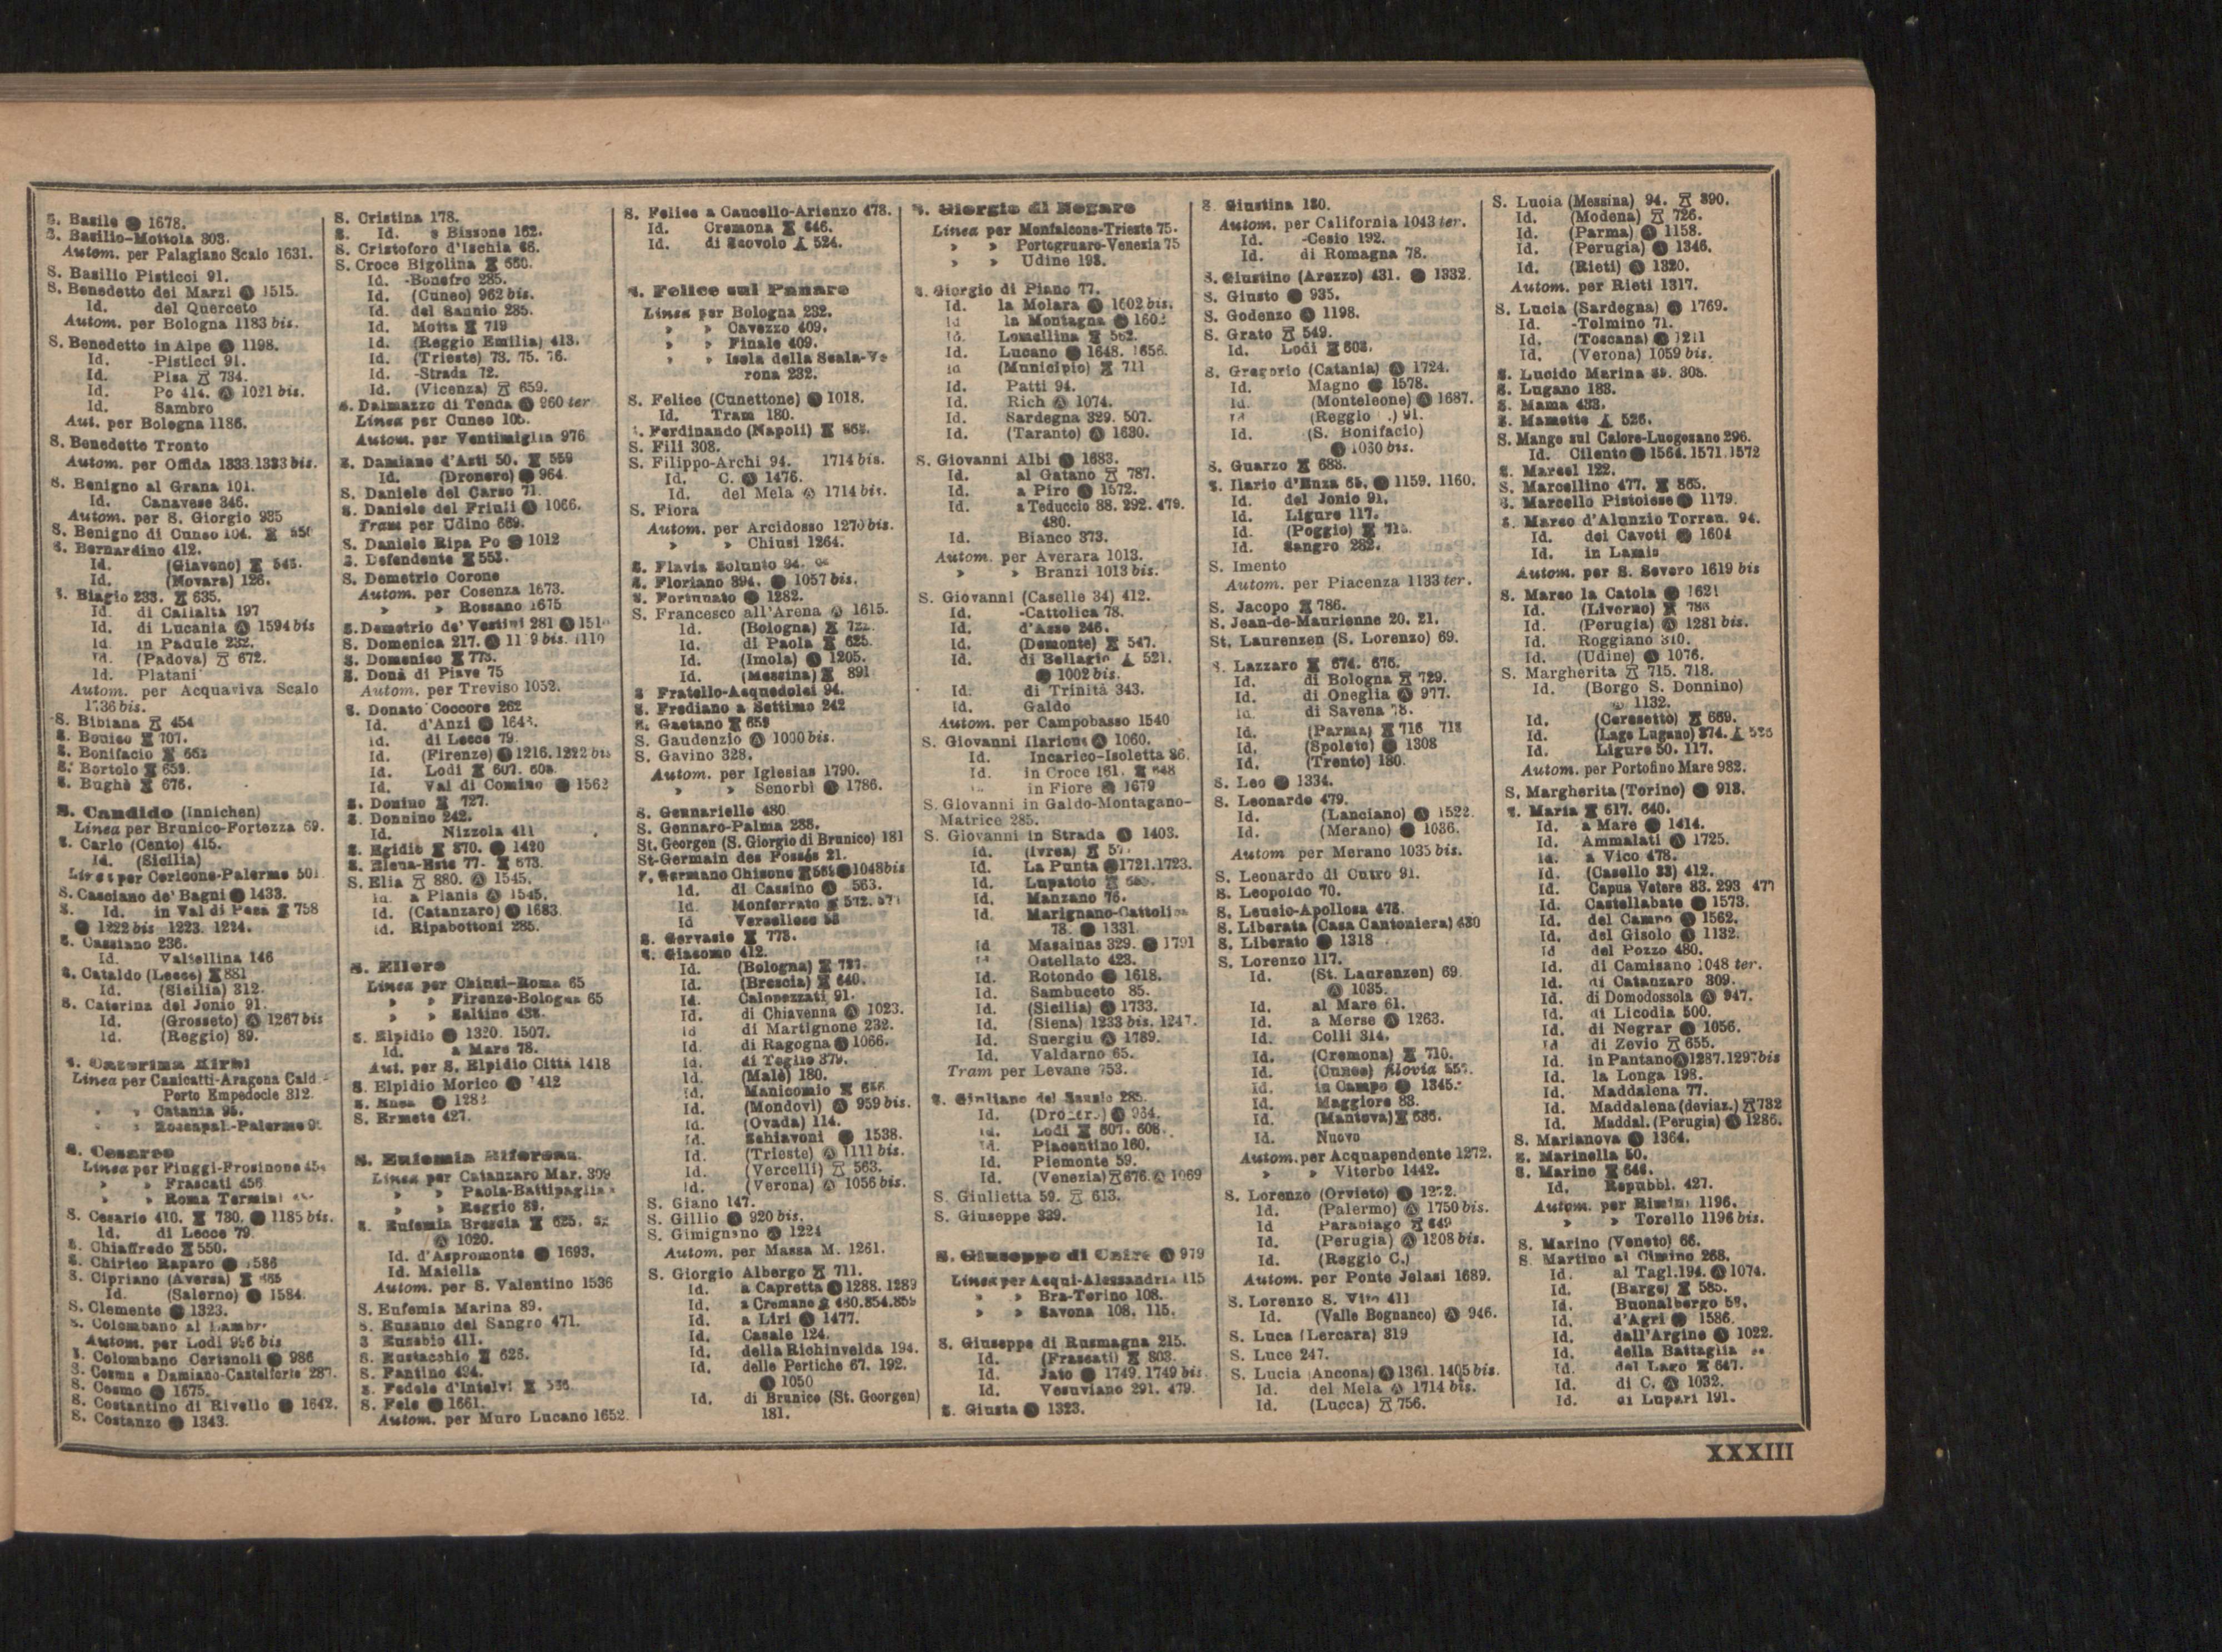 S. Basile 1678.
S. Basilio-Mottola 303.
Autom. per Palagiano Scalo 1631.
S. Basilio Pisticci 91.
S. Benedetto dei Marzi Ⓐ 1515.
Id. del Querceto
Autom. per Bologna 1183 bis.
S. Benedetto in Alpe Ⓐ 1198.
Id. -Pisticci 91.
Id. Pisa 734.
Id. Po 414. Ⓐ 1021 bis.
Id. Sambro
Aut. per Bologna 1186.
S. Benedetto Tronto
Autom. per Offida 1333.1333 bis.
S. Benigno al Grana 101.
Id. Canavese 346.
Autom. per S. Giorgio 935
S. Benigno di Cuneo 104.
S. Bernardino 412.
Id. (Giaveno) 545.
Id. (Novara) 126.
S. Biagio 233. 635.
Id. di Callalta 197
Id. di Lucania Ⓐ 1594 bis
Id. in Padule 232.
Id. (Padova) 672.
Id. Platani
Autom. per Acquaviva Scalo
1736 bis.
S. Bibiana 454
S. Bonico 707.
S. Bonifacio
S. Bortolo 659.
S. Bughè 676.
S. Candido (Innichen)
Linea per Brunico-Fortezza 69.
S. Carlo (Cento) 415.
Id. (Sicilia)
Linea per Corleone-Palermo
S. Casciano de' Bagni 1433.
S. Id. in Val di Pesa 758
1222 bis 1223. 1224.
S. Cassiano 236.
Id. Valtellina 146
S. Cataldo (Lecce) 881
Id. (Sicilia) 312.
S. Caterina del Jonio 91.
Id. (Grosseto) Ⓐ 1267 bis
Id. (Reggio) 89.
S. Caterina Xirbi
Linea per Canicatti-Aragona Cald.-
Porto Empedocle 312.
» » Catania
» » Roccapal.-Palermo
S. Cesareo
Linea per Fiuggi-Frosinone
» » Frascati 456
» » Roma Termini
S. Cesario 410. 730. 1185 bis.
Id. di Lecce 79.
S. Chiaffredo 550.
S. Chirico Raparo 1586
S. Cipriano (Aversa)
Id. (Salerno) 1584.
S. Clemente 1323.
S. Colombano al Lambro
Autom. per Lodi 996 bis
S. Colombano Certenoli 986
S. Cosma e Damiano-Castelforte 287.
S. Cosmo 1675.
S. Costantino di Rivello 1642.
S. Costanzo 1343.
S. Cristina 178.
S. Id. e Bissone 162.
S. Cristoforo d'Ischia 68.
S. Croce Bigolina 660.
Id. -Bonefro 285.
Id. (Cuneo) 962 bis.
Id. del Sannio 285.
Id. Motta 719
Id. (Reggio Emilia) 413.
Id. (Trieste) 73. 75. 76.
Id. -Strada 72.
Id. (Vicenza) 659.
S. Dalmazzo di Tenda 960 ter
Linea per Cuneo 105.
Autom. per Ventimiglia 976
S. Damiano d'Asti 50. 559
Id. (Dronero) 964
S. Daniele del Carso 71.
S. Daniele del Friuli 1066.
Tram per Udine 669.
S. Daniele Ripa Po 1012
S. Defendente 553.
S. Demetrio Corone
Autom. per Cosenza 1673.
» » Rossano 1675
S. Demetrio de' Vestini 281
S. Domenica 217.
S. Domenico 773.
S. Donà di Piave 75
Autom. per Treviso 1052.
S. Donato Coccore 262
Id. d'Anzi 1643.
Id. di Lecce 79
Id. (Firenze) 1216.1222 bis
Id. Lodi 607. 608.
Id. Val di Comino 1562
S. Donino 727.
S. Donnino 242.
Id. Nizzola 411
S. Egidio 870. 1420
S. Elena-Este 77. 673.
S. Elia 880. Ⓐ 1545.
Id. a Pianis Ⓐ 1545.
Id. (Catanzaro) 1683.
Id. Ripabottoni 285.
S. Ellero
Linea per Chiusi-Roma 65
» » Firenze-Bologna 65
» » Saltino 438.
S. Elpidio 1320. 1507.
Id. a Mare 78.
Aut. per S. Elpidio Città 1418
S. Elpidio Morico 1412
S. Enea
S. Ermete 427.
S. Eufemia Biforcaz.
Linea per Catanzaro Mar. 309
» » Paola-Battipaglia
» » Reggio 89.
S. Eufemia Brescia 625.
Ⓐ 1020.
Id. d'Aspromonte 1693.
Id. Maiella
Autom. per S. Valentino 1536
S. Eufemia Marina 89.
S. Eusanio del Sangro 471.
S. Eusebio 411.
S. Eustacchio 625.
S. Fantino 494.
S. Fedele d'Intelvi
S. Fele 1661.
Autom. per Muro Lucano 1652.
S. Felice a Cancello-Arienzo 478.
Id. Cremona 646.
Id. di Scovolo 524.
S. Felice sul Panaro
Linea per Bologna 232.
» » Cavezzo 409.
» » Finale 409.
» » Isola della Scala-Ve
rona 232.
S. Felice (Cunettone) 1018.
Id. Tram 180.
S. Ferdinando (Napoli)
S. Fili 308.
S. Filippo-Archi 94. 1714 bis.
Id. C. 1476.
Id. del Mela Ⓐ 1714 bis.
S. Fiora
Autom. per Arcidosso 1270 bis.
» » Chiusi 1264.
S. Flavia Solunto 94.
S. Floriano 394. 1057 bis.
S. Fortunato 1282.
S. Francesco all'Arena Ⓐ 1615.
Id. (Bologna)
Id. di Paola 625.
Id. (Imola) 1205.
Id. (Messina) 891
S. Fratello-Acquedolci 94.
S. Frediano a Settimo 242
S. Gaetano 659
S. Gaudenzio Ⓐ 1000 bis.
S. Gavino 328.
Autom. per Iglesias 1790.
» » Senorbì 1786.
S. Gennariello 480.
S. Gennaro-Palma 288.
St. Georgen (S. Giorgio di Brunico) 181
St-Germain des Fossés 21.
S. Germano Chisone 1048 bis
Id. di Cassino 563.
Id. Monferrato 572.
Id. Vercellese 53
S. Gervasio 773.
S. Giacomo 412.
Id. (Bologna)
Id. (Brescia) 640.
Id. Calopezzati 91.
Id. di Chiavenna Ⓐ 1023.
Id. di Martignone 232.
Id. di Ragogna 1066.
Id. di Teglio 379.
Id. (Malè) 180.
Id. Manicomio
Id. (Mondovì) Ⓐ 959 bis.
Id. (Ovada) 114.
Id. Schiavoni 1538.
Id. (Trieste) Ⓐ 1111 bis.
Id. (Vercelli) 563.
Id. (Verona) Ⓐ 1056 bis.
S. Giano 147.
S. Gillio 920 bis.
S. Gimignano 1224
Autom. per Massa M. 1261.
S. Giorgio Albergo 711.
Id. a Capretta 1288. 1289
Id. a Cremano 480.854.859
Id. a Liri 1477.
Id. Casale 124.
Id. della Richinvelda 194.
Id. delle Pertiche 67. 192.
1050
Id. di Brunico (St. Georgen)
181.
S. Giorgio di Nogaro
Linea per Monfalcone-Trieste 75.
» » Portogruaro-Venezia 75
» » Udine 193.
S. Giorgio di Piano 77.
Id. la Molara Ⓐ 1602 bis.
Id. la Montagna
Id. Lomellina 562.
Id. Lucano 1648. 1656.
Id. (Municipio) 711
Id. Patti 94.
Id. Rich Ⓐ 1074.
Id. Sardegna 329. 507.
Id. (Taranto) Ⓐ 1630.
S. Giovanni Albi 1683.
Id. al Gatano 787.
Id. a Piro 1572.
Id. a Teduccio 88. 292. 479.
480.
Id. Bianco 373.
Autom. per Averara 1013.
» » Branzi 1013 bis.
S. Giovanni (Caselle 34) 412.
Id. -Cattolica 78.
Id. d'Asso 246.
Id. (Demonte) 547.
Id. di Bellagio 521.
1002 bis.
Id. di Trinità 343.
Id. Galdo
Autom. per Campobasso 1540
S. Giovanni Ilarione Ⓐ 1060.
Id. Incarico-Isoletta 86.
Id. in Croce 161.
in Fiore 1679
S. Giovanni in Galdo-Montagano-
Matrice 285.
S. Giovanni in Strada Ⓐ 1403.
Id. (Ivrea)
Id. La Punta 1721.1723.
Id. Lupatoto
Id. Manzano 76.
Id. Marignano-Cattolica
78. 1331.
Id. Masainas 329. 1791
Ostellato 423.
Id. Rotondo 1618.
Id. Sambuceto 85.
Id. (Sicilia) 1733.
Id. (Siena) 1233 bis. 1247.
Id. Suergiu Ⓐ 1789.
Id. Valdarno 65.
Tram per Levane 753.
S. Giuliano del Sannio 285.
Id. (Droner.) 964.
Id. Lodi 607. 608.
Id. Piacentino 160.
Id. Piemonte 59.
Id. (Venezia) 676. Ⓐ 1069
S. Giulietta 59. 613.
S. Giuseppe 339.
S. Giuseppe di Cairo Ⓐ 979
Linea per Acqui-Alessandria 115
» » Bra-Torino 108.
» » Savona 108. 115.
S. Giuseppe di Rusmagna 215.
Id. (Frascati) 803.
Id. Jato 1749. 1749 bis
Id. Vesuviano 291. 479.
S. Giusta 1323.
S. Giustina 180.
Autom. per California 1043 ter.
Id. -Cesio 192.
Id. di Romagna 78.
S. Giustino (Arezzo) 431. 1332.
S. Giusto 935.
S. Godenzo 1198.
S. Grato 549.
Id. Lodi 608.
S. Gregorio (Catania) Ⓐ 1724.
Id. Magno 1578.
Id. (Monteleone) Ⓐ 1687.
(Reggio .) 91.
Id. (S. Bonifacio)
1060 bis.
S. Guarzo 688.
S. Ilario d'Enza 65. 1159. 1160.
Id. del Jonio 91.
Id. Ligure 117.
Id. (Poggio)
Id. Sangro 282.
S. Imento
Autom. per Piacenza 1133 ter.
S. Jacopo 786.
S. Jean-de-Maurienne 20. 21.
St. Laurenzen (S. Lorenzo) 69.
S. Lazzaro 674. 676.
Id. di Bologna 729.
Id. di Oneglia Ⓐ 977.
Id. di Savena 78.
Id. (Parma) 716 718
Id. (Spoleto) 1308
Id. (Trento) 180.
S. Leo 1334.
S. Leonardo 479.
Id. (Lanciano) 1522
Id. (Merano) 1036.
Autom. per Merano 1035 bis.
S. Leonardo di Cutro 91.
S. Leopoldo 70.
S. Leucio-Apollosa 478.
S. Liberata (Casa Cantoniera) 430
S. Liberato 1318
S. Lorenzo 117.
Id. (St. Laurenzen) 69
Ⓐ 1035.
Id. al Mare 61.
Id. a Merse Ⓐ 1263.
Id. Colli 314.
Id. (Cremona) 710.
Id. (Cuneo) filovia
Id. in Campo 1345.
Id. Maggiore 83.
Id. (Mantova) 636.
Id. Nuovo
Autom. per Acquapendente 1272.
» » Viterbo 1442.
S. Lorenzo (Orvieto) 1272.
Id. (Palermo) Ⓐ 1750 bis.
Id. Parabiago 649
Id. (Perugia) Ⓐ 1308 bis.
Id. (Reggio C.)
Autom. per Ponte Jelasi 1689.
S. Lorenzo S. Vito 411
Id. (Valle Bognanco) Ⓐ 946.
S. Luca (Lercara) 319
S. Luce 247.
S. Lucia (Ancona) Ⓐ 1361. 1405 bis.
Id. del Mela Ⓐ 1714 bis.
Id. (Lucca) 756.
S. Lucia (Messina) 94. 890.
Id. (Modena) 726.
Id. (Parma) Ⓐ 1158.
Id. (Perugia) 1346.
Id. (Rieti) Ⓐ 1320.
Autom. per Rieti 1317.
S. Lucia (Sardegna) 1769.
Id. -Tolmino 71.
Id. (Toscana) 1211
Id. (Verona) 1059 bis.
S. Lucido Marina 89. 308.
S. Lugano 183.
S. Mama 433.
S. Mamette 526.
S. Mango sul Calore-Luogosano 296.
Id. Cilento 1564. 1571. 1572
S. Marcel 122.
S. Marcellino 477. 865.
S. Marcello Pistoiese 1179.
S. Marco d'Alunzio Torren. 94.
Id. dei Cavoti 1604
Id. in Lamis
Autom. per S. Severo 1619 bis
S. Marco la Catola 1621
Id. (Livorno)
Id. (Perugia) Ⓐ 1281 bis.
Id. Roggiano 310.
Id. (Udine) 1076.
S. Margherita 715. 718.
Id. (Borgo S. Donnino)
1132.
Id. (Ceresetto) 669.
Id. (Lago Lugano) 374.
Id. Ligure 50. 117.
Autom. per Portofino Mare 982.
S. Margherita (Torino) 913.
S. Maria 617. 640.
Id. a Mare 1414.
Id. Ammalati Ⓐ 1725.
Id. a Vico 478.
Id. (Casello 23) 412.
Id. Capua Vetere 83. 293 477
Id. Castellabate 1573.
Id. del Campo 1562.
Id. del Gisolo Ⓐ 1132.
Id. del Pozzo 480.
Id. di Camisano 1048 ter.
Id. di Catanzaro 309.
Id. di Domodossola Ⓐ 947.
Id. di Licodia 500.
Id. di Negrar 1056.
Id. di Zevio 655.
Id. in Pantano Ⓐ 1287.1297 bis
Id. la Longa 198.
Id. Maddalena 77.
Id. Maddalena (deviaz.) 732
Id. Maddal. (Perugia) Ⓐ 1286.
S. Marianova 1364.
S. Marinella 50.
S. Marino 646.
Id. Repubbl. 427.
Autom. per Rimini 1196.
» » Torello 1196 bis.
S. Marino (Veneto) 66.
S. Martino al Cimino 268.
Id. al Tagl. 194. Ⓐ 1074.
Id. (Barge) 585.
Id. Buonalbergo 58.
Id. d'Agri 1586.
Id. dall'Argine Ⓐ 1022.
Id. della Battaglia
Id. del Lago 647.
Id. di C. Ⓐ 1032.
Id. di Lupari 191.
XXXIII